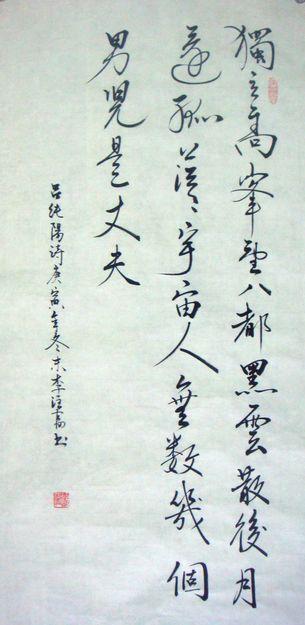 獨立高峯望八都黑雲散後月
還孤茫々宇宙人無數幾個
男兒是丈夫
呂純陽詩庚寅年冬末李书